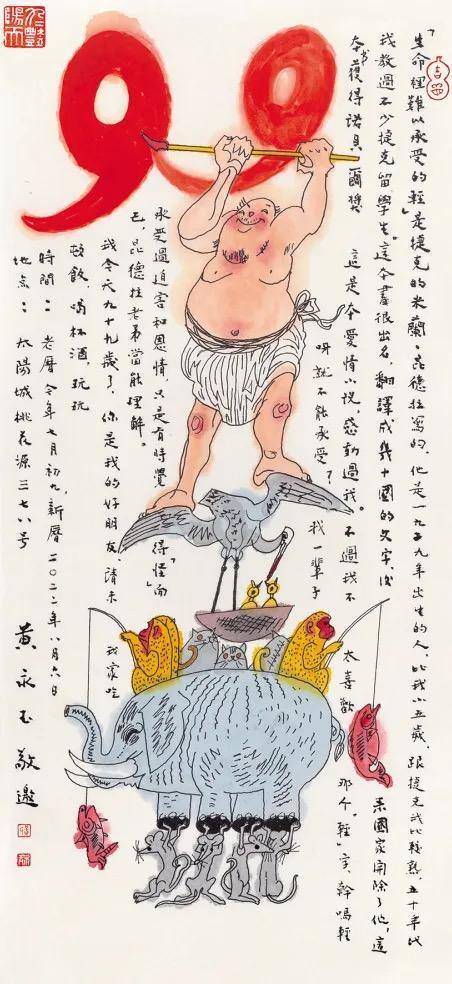 99
「生命裡難以承受的輕」是捷克的米蘭·昆德拉寫的，他是一九二九年出生的人，比我小五歲，跟捷克我比較熟，五十年代
我教過不少捷克留學生。這本書很出名，翻譯成幾十國的文字，後來國家開除了他，這
本書獲得諾貝爾獎 這是本愛情小說，感動過我。不過我不太喜歡那个「輕」字，幹嗎輕
呀就不能承受？我一輩子
承受過迫害和恩情，只是有時覺「得怪」而
已，昆德拉老弟當能理解。
我今天九十九歲了，你是我的好朋友，請来我家吃
頓飯、喝杯酒，玩玩
時間：老曆今年七月初九，新曆二〇二二年八月六日
地点：太陽城桃花源三七八号 黃永玉敬邀